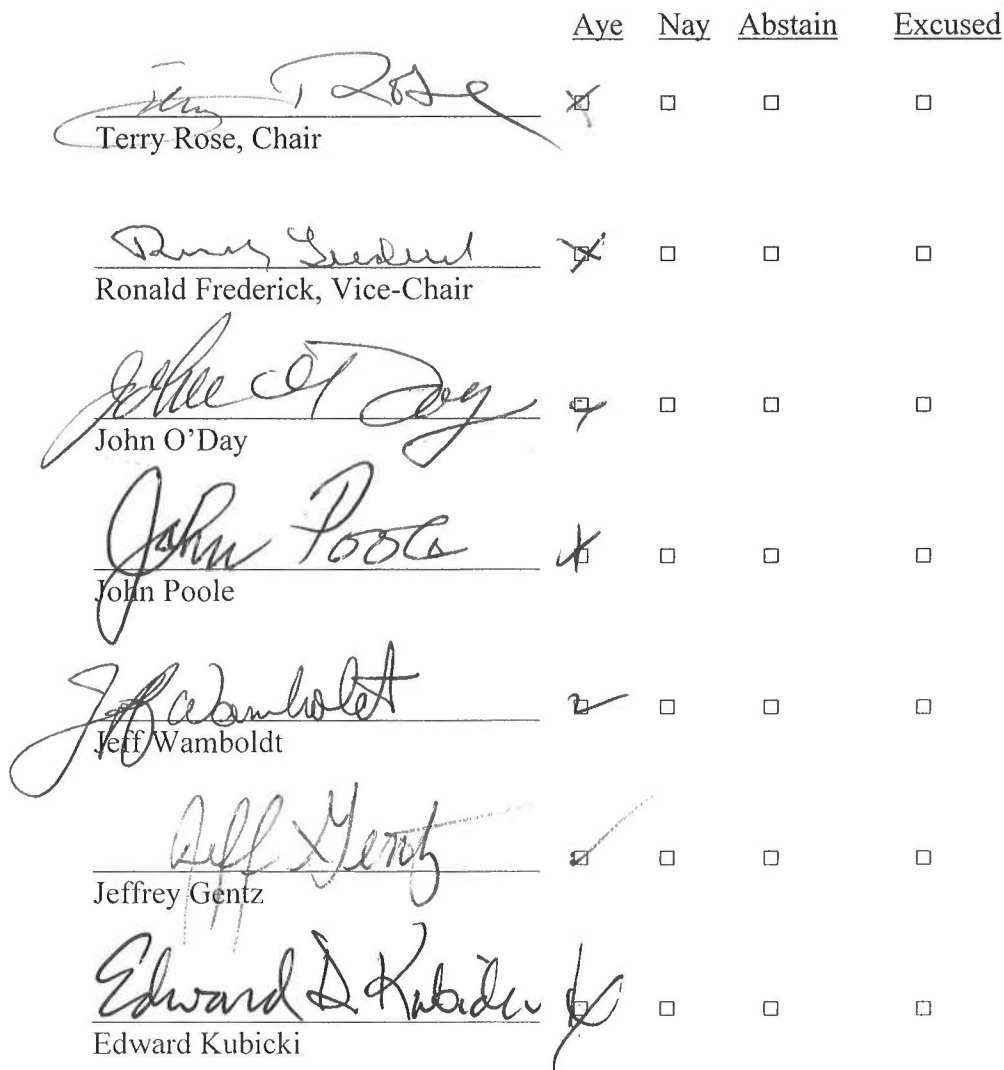 Aye Nay Abstain Excused
Terry Rose
Terry Rose, Chair
Ronald Frederick, Vice-Chair
John O'Day
John O'Day
John Poole
John Poole
Jeff Wamboldt
Jeff Wamboldt
Jeff Gentz
Jeffrey Gentz
Edward D. Kubicki
Edward Kubicki